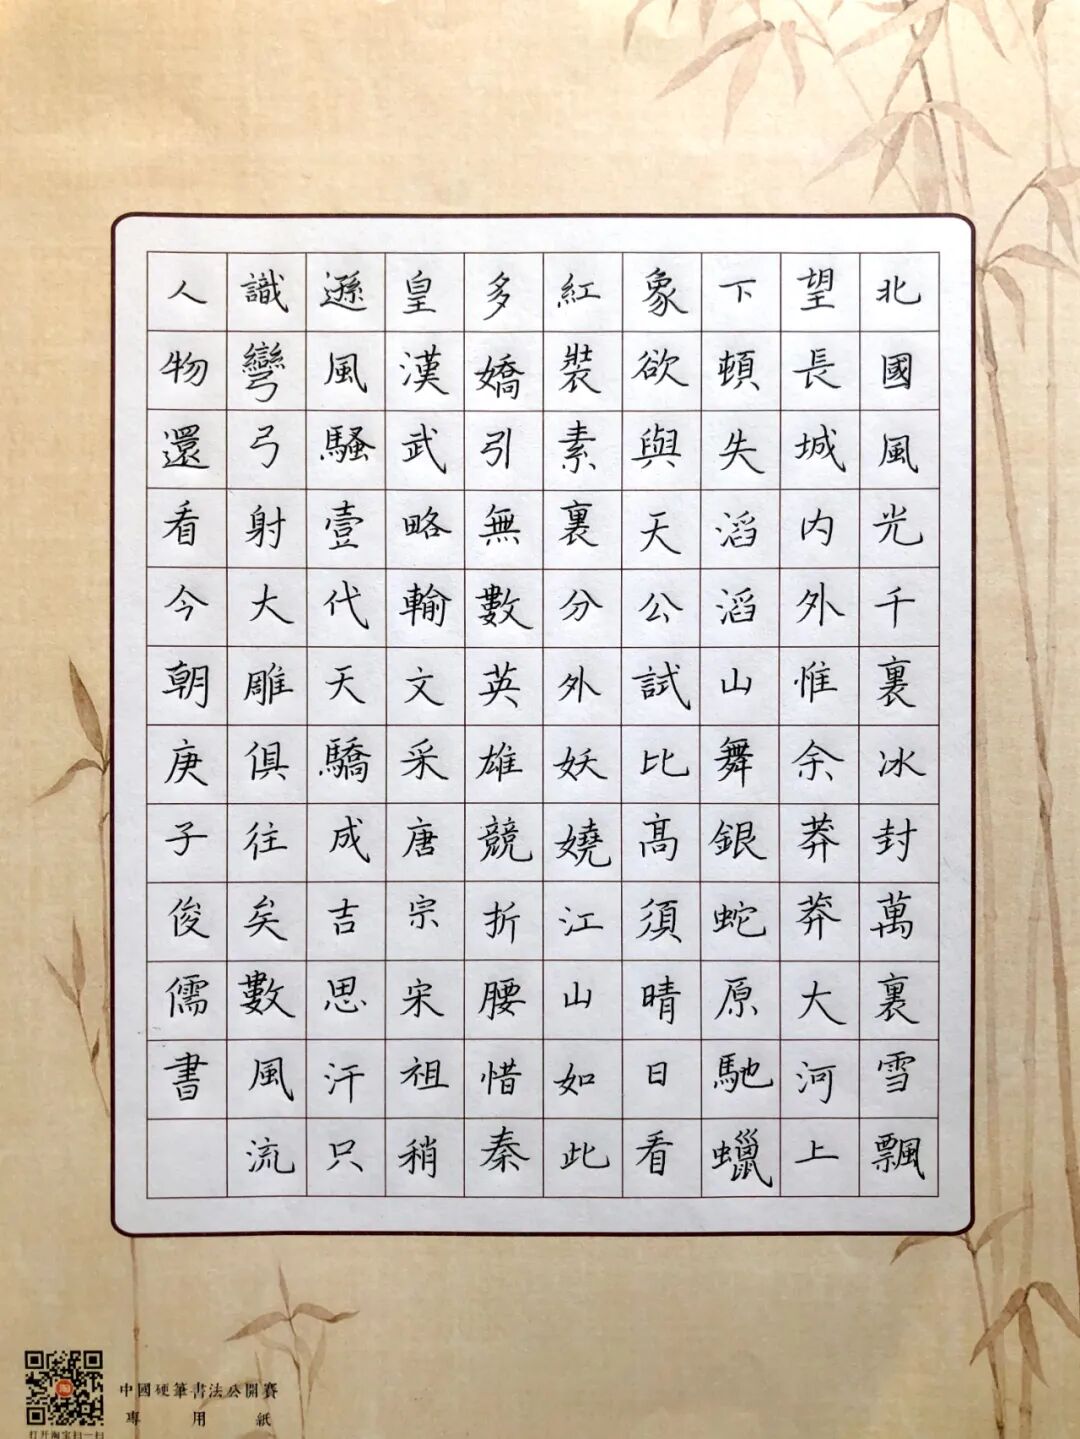 北國風光千裏冰封萬裏雪飄
望長城内外惟余莽莽大河上
下頓失滔滔山舞銀蛇原馳蠟
象欲與天公試比高須晴日看
紅裝素裹分外妖嬈江山如此
多嬌引無數英雄競折腰惜秦
皇漢武略輸文采唐宗宋祖稍
遜風騷壹代天驕成吉思汗只
識彎弓射大雕俱往矣數風流
人物還看今朝庚子俊儒書
中國硬筆書法公開賽
專用紙
打开淘宝扫一扫